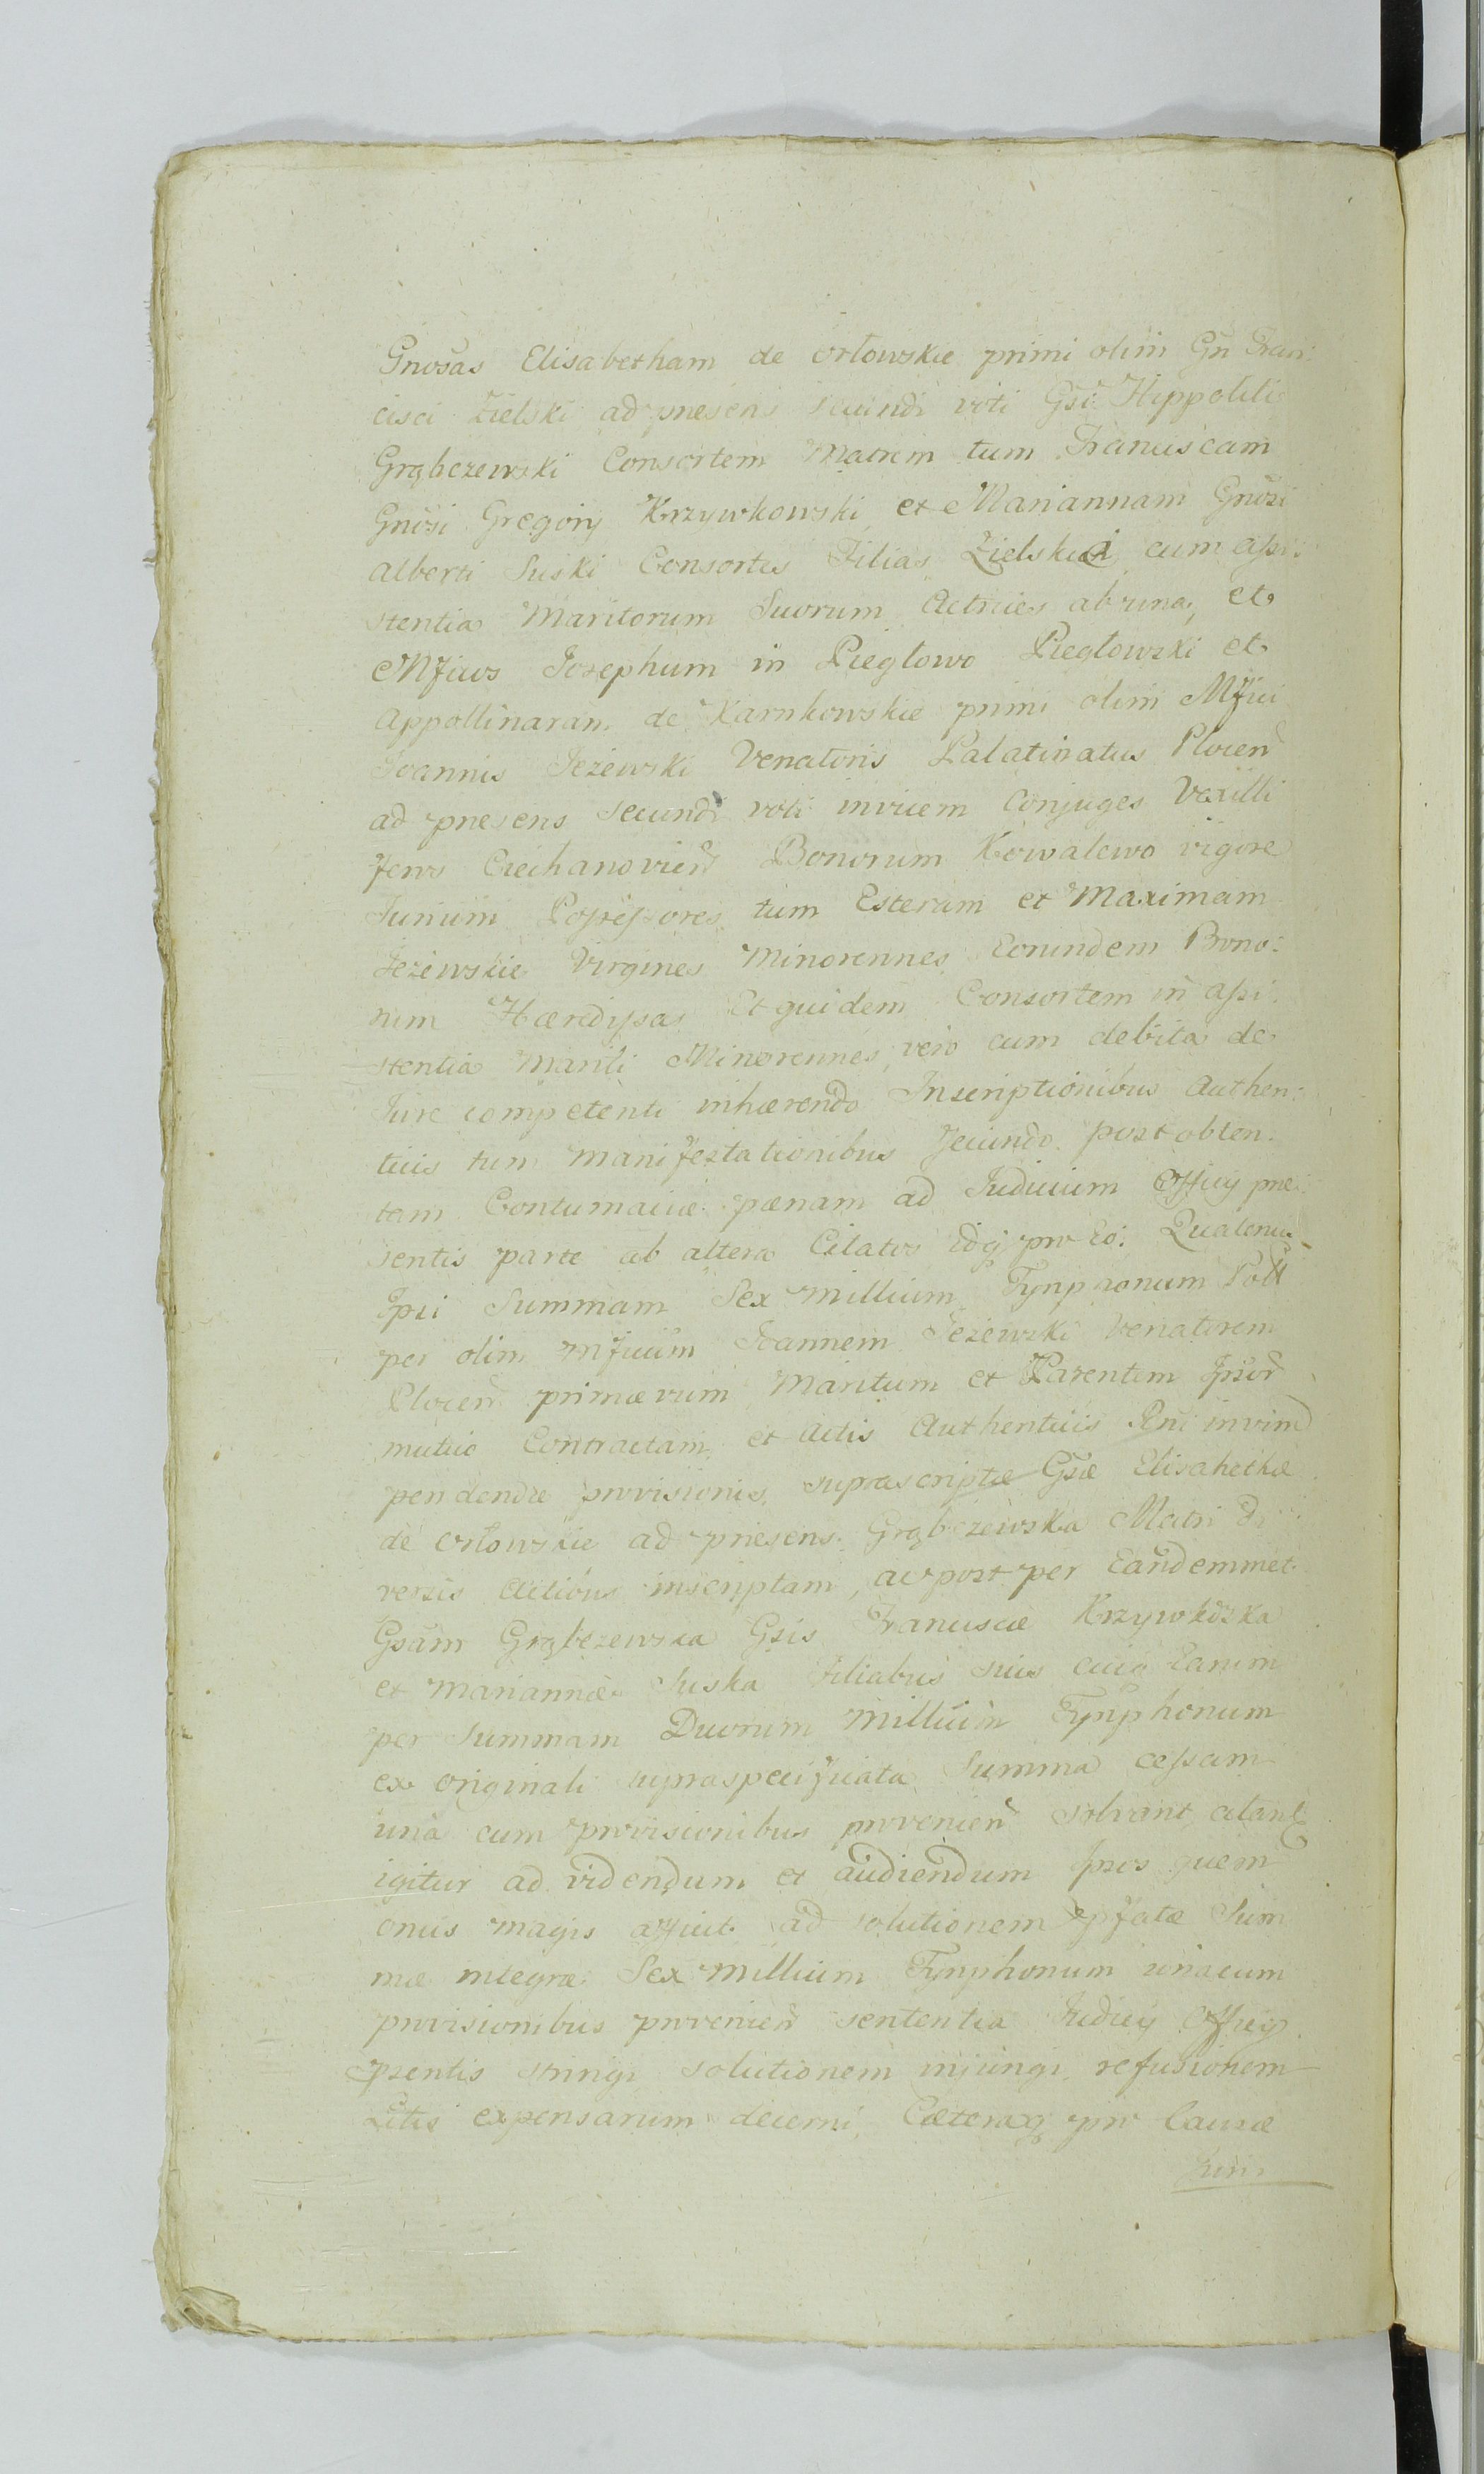 Gnosas Elisabetham de Orłowskie primi olim Gn Fran:
cisci Zielski ad præsens secundi voti Gsi Hippoliti
Grąbczewski Consortem Matrem tum Franciscam
Gnosi Gregorij Krzywkowski et Mariannam Gnosi
Alberti Suski Consortes Filias Zielskie cum assi:
stentia Maritorum Suorum Actrices ab una, et
Mfcos Josephum in Pieglowo Pieglowski et
Appollinaram de Karnkowskie primi olim Mfici
Joannis Jeżewski Venatoris Palatinatus Plocen
ad præsens secundi voti invicem Conjuges Vexilli
feros Ciechanovien Bonorum Kowalewo vigore
Jurium Possessores tum Esteram et Maximam
Jeżewskie Virgines Minorennes Eorundem Bono:
rum Hæredissas Et quidem Consortem in assi:
stentia Mariti Minorennes vero cum debita de
Jure competenti inhærendo Inscriptionibus Authen:
ticis tum manifestationibus secundo post obten:
tam Contumaciæ pœnam ad Judicium Officij præ:
sentis parte ab altera Citatos idq pro Eo: Quatenus
Ipsi Summam Sex Millium Tynphonum Poll
per olim Mficum Joannem Jeżewski Venatorem
Plocen primævum Maritum et Parentem Ipsor
mutuo Contractam et Actis Authenticis
pendendæ provisionis suprascriptæ Gsæ Elisabethæ
de Orłowskie ad præsens Grąbczewska Matri di:
versis Actibus inscriptam, ac post per Eandemmet
Gsam Grąbczewska Gsis Franciscæ Krzywkoska
et Mariannæ Suska Filiabus suis cuiq Earum
per Summam Duorum Millium Tynphonum
ex originali supraspecificata Summa cessam
una cum provisionibus provenien solvant citant
igitur ad videndum et audiendum Ipsos quem
onus magis afficit ad solutionem epfatæ Sum
mæ integræ Sex Millium Tynphonum unacum
provisionibus provenien sententia Judicij Officij
pzentis stringi solutionem injungi refusionem
Litis expensarum decerni, Cæteraq pro Causæ
Juris